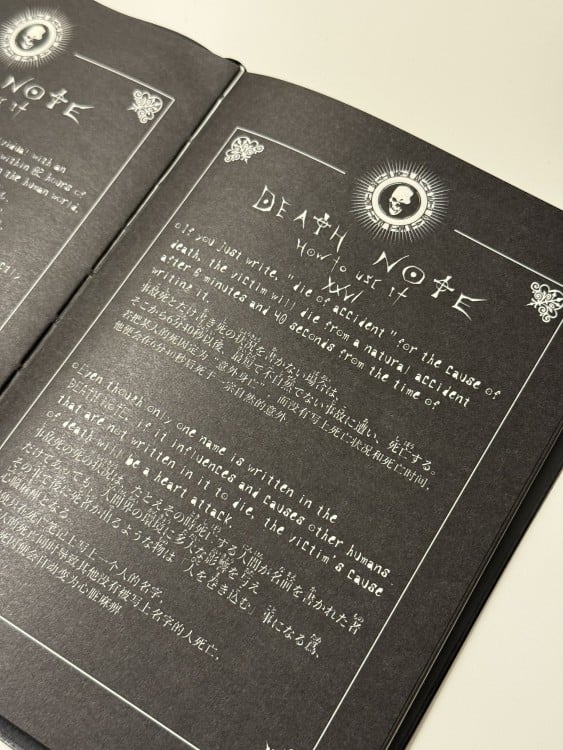 NOTE
use it
with an
within 82 hours of
the human world.
DEATH NOTE
How to use it
XXVI
○If you just write, "die of accident" for the cause of
death, the victim will die from a natural accident
after 6 minutes and 40 seconds from the time of
writing it.
事故死とだけ書き死の状況を書かない場合は、
そこから6分40秒以後、最短で不自然でない事故に遭い、死亡する。
若把某人的死因定为“意外身亡”，而没有写上死亡状况和死亡时间，
他便会在6分40秒后死于一宗自然的意外
○Even though only one name is written in the
DEATH NOTE, if it influences and causes other humans
that are not written in it to die, the victim's cause
of death will be a heart attack.
事故死の死の状況は、たとえその時死亡する人間が名前を書かれた者
だけであっても、人間界の環境に多大な影響を与え
その事で後に死者が出るような物は「人を巻き込む」事になる為、
心臓麻痺となる
笔记上写上一个人的名字
状况同时导致其他没有被写上名字的人死亡，
死因便会自动变为心脏麻痹